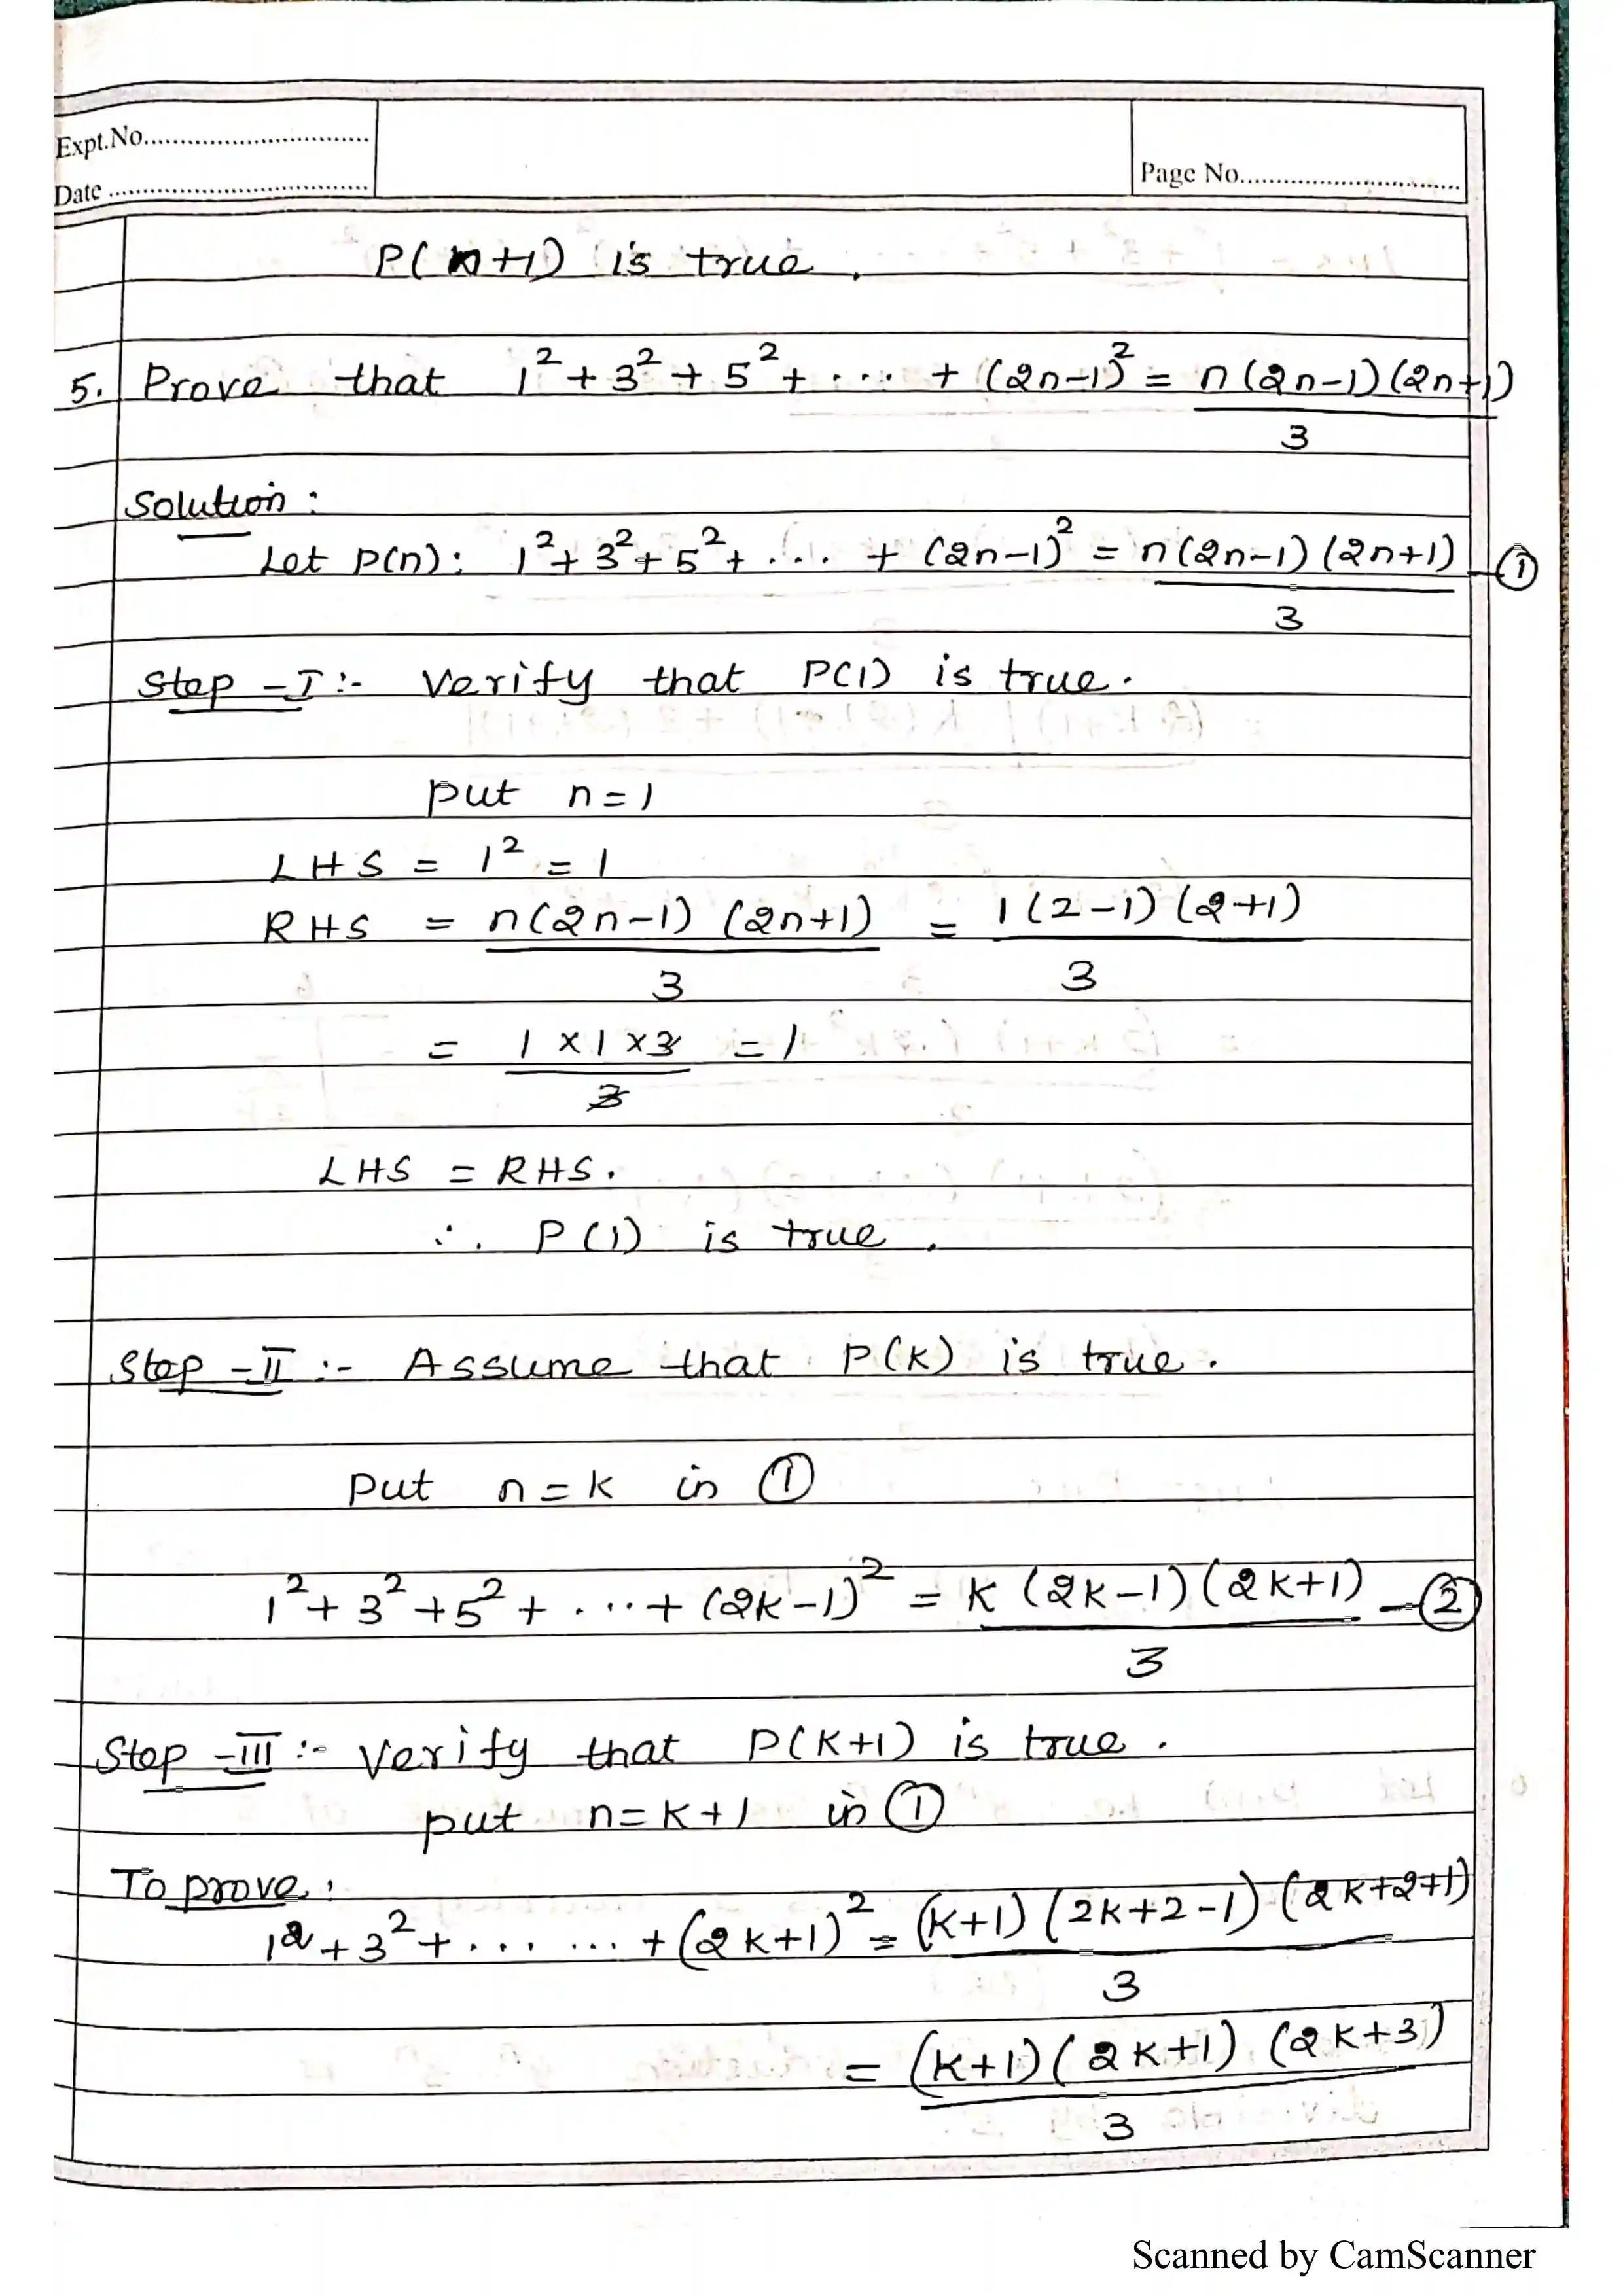 Expt.No..............................
Date ..................................
Page No..............................
P(n+1) is true.
5. Prove that 1² + 3² + 5² + ... + (2n-1)² = n(2n-1)(2n+1)
3
Solution :
Let P(n): 1² + 3² + 5² + .... + (2n-1)² = n(2n-1)(2n+1) — ①
3
Step -I :- Verify that P(1) is true.
put n=1
LHS = 1² = 1
RHS = n(2n-1) (2n+1) = 1(2-1)(2+1)
3 3
= 1 × 1 × 3 = 1
3
LHS = RHS.
∴ P(1) is true.
Step -II :- Assume that P(k) is true.
Put n=k in ①
1² + 3² + 5² + ... + (2k-1)² = k (2k-1)(2k+1) — ②
3
Step -III :- Verify that P(k+1) is true.
put n=k+1 in ①
To prove :
1² + 3² + .... ... + (2k+1)² = (k+1) (2k+2-1) (2k+2+1)
3
= (k+1)(2k+1) (2k+3)
3
Scanned by CamScanner